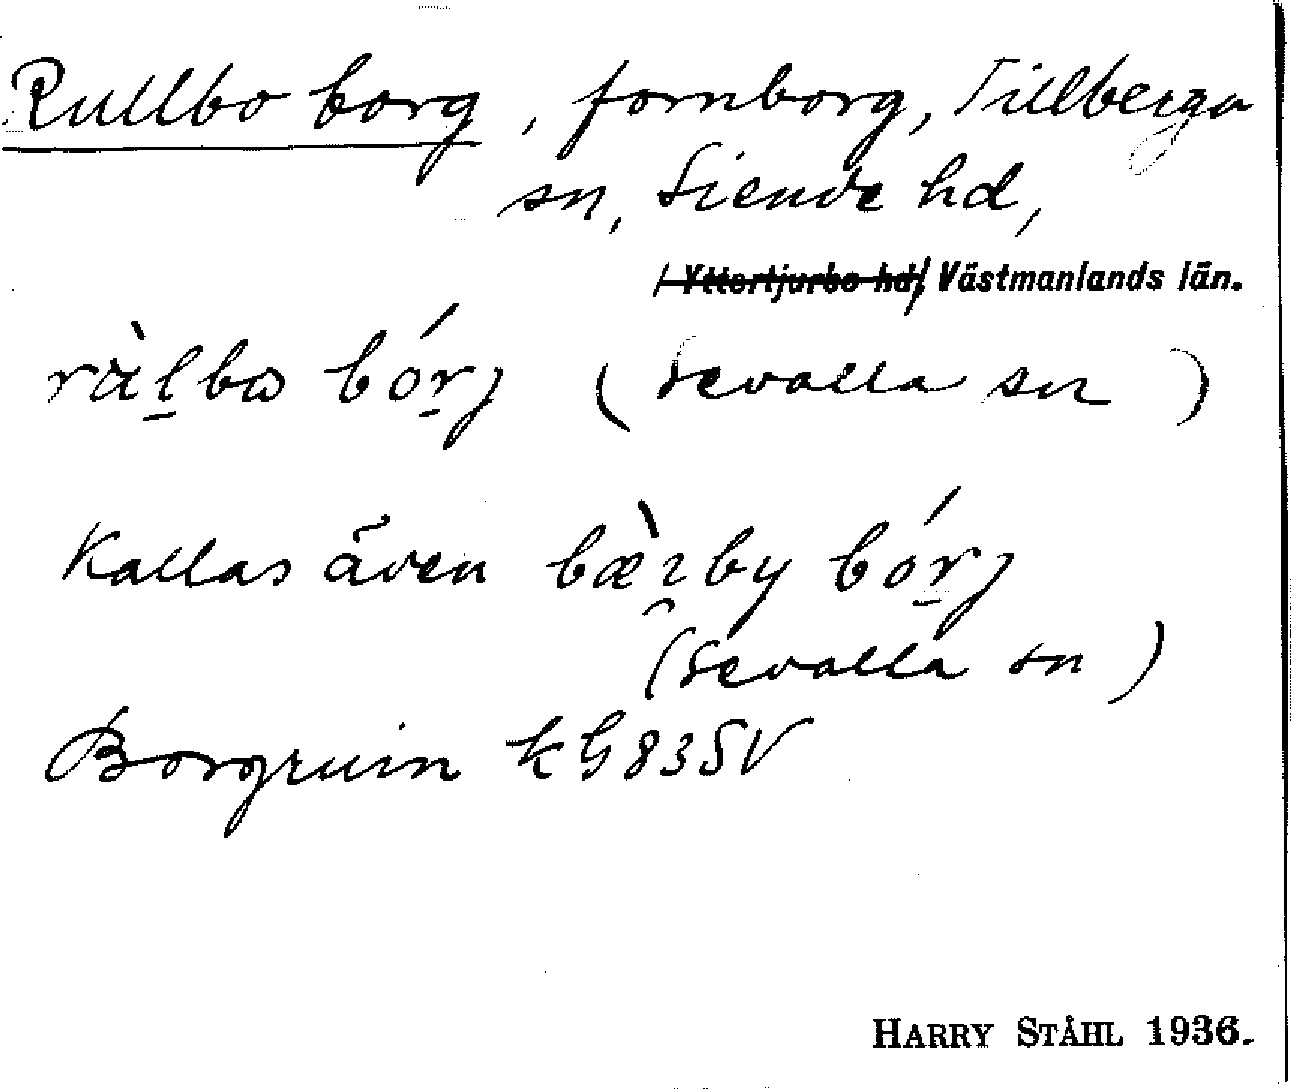 Rullbo borg, fornborg, Tillberga
sn, Siende hd,
Yttertjurbo hd, Västmanlands län.
bórj (Sevalla sn)
Kallas även bæ̀rby bórj
(Sevalla sn)
Borgruin k G83SV
HARRY STÅHL 1936.